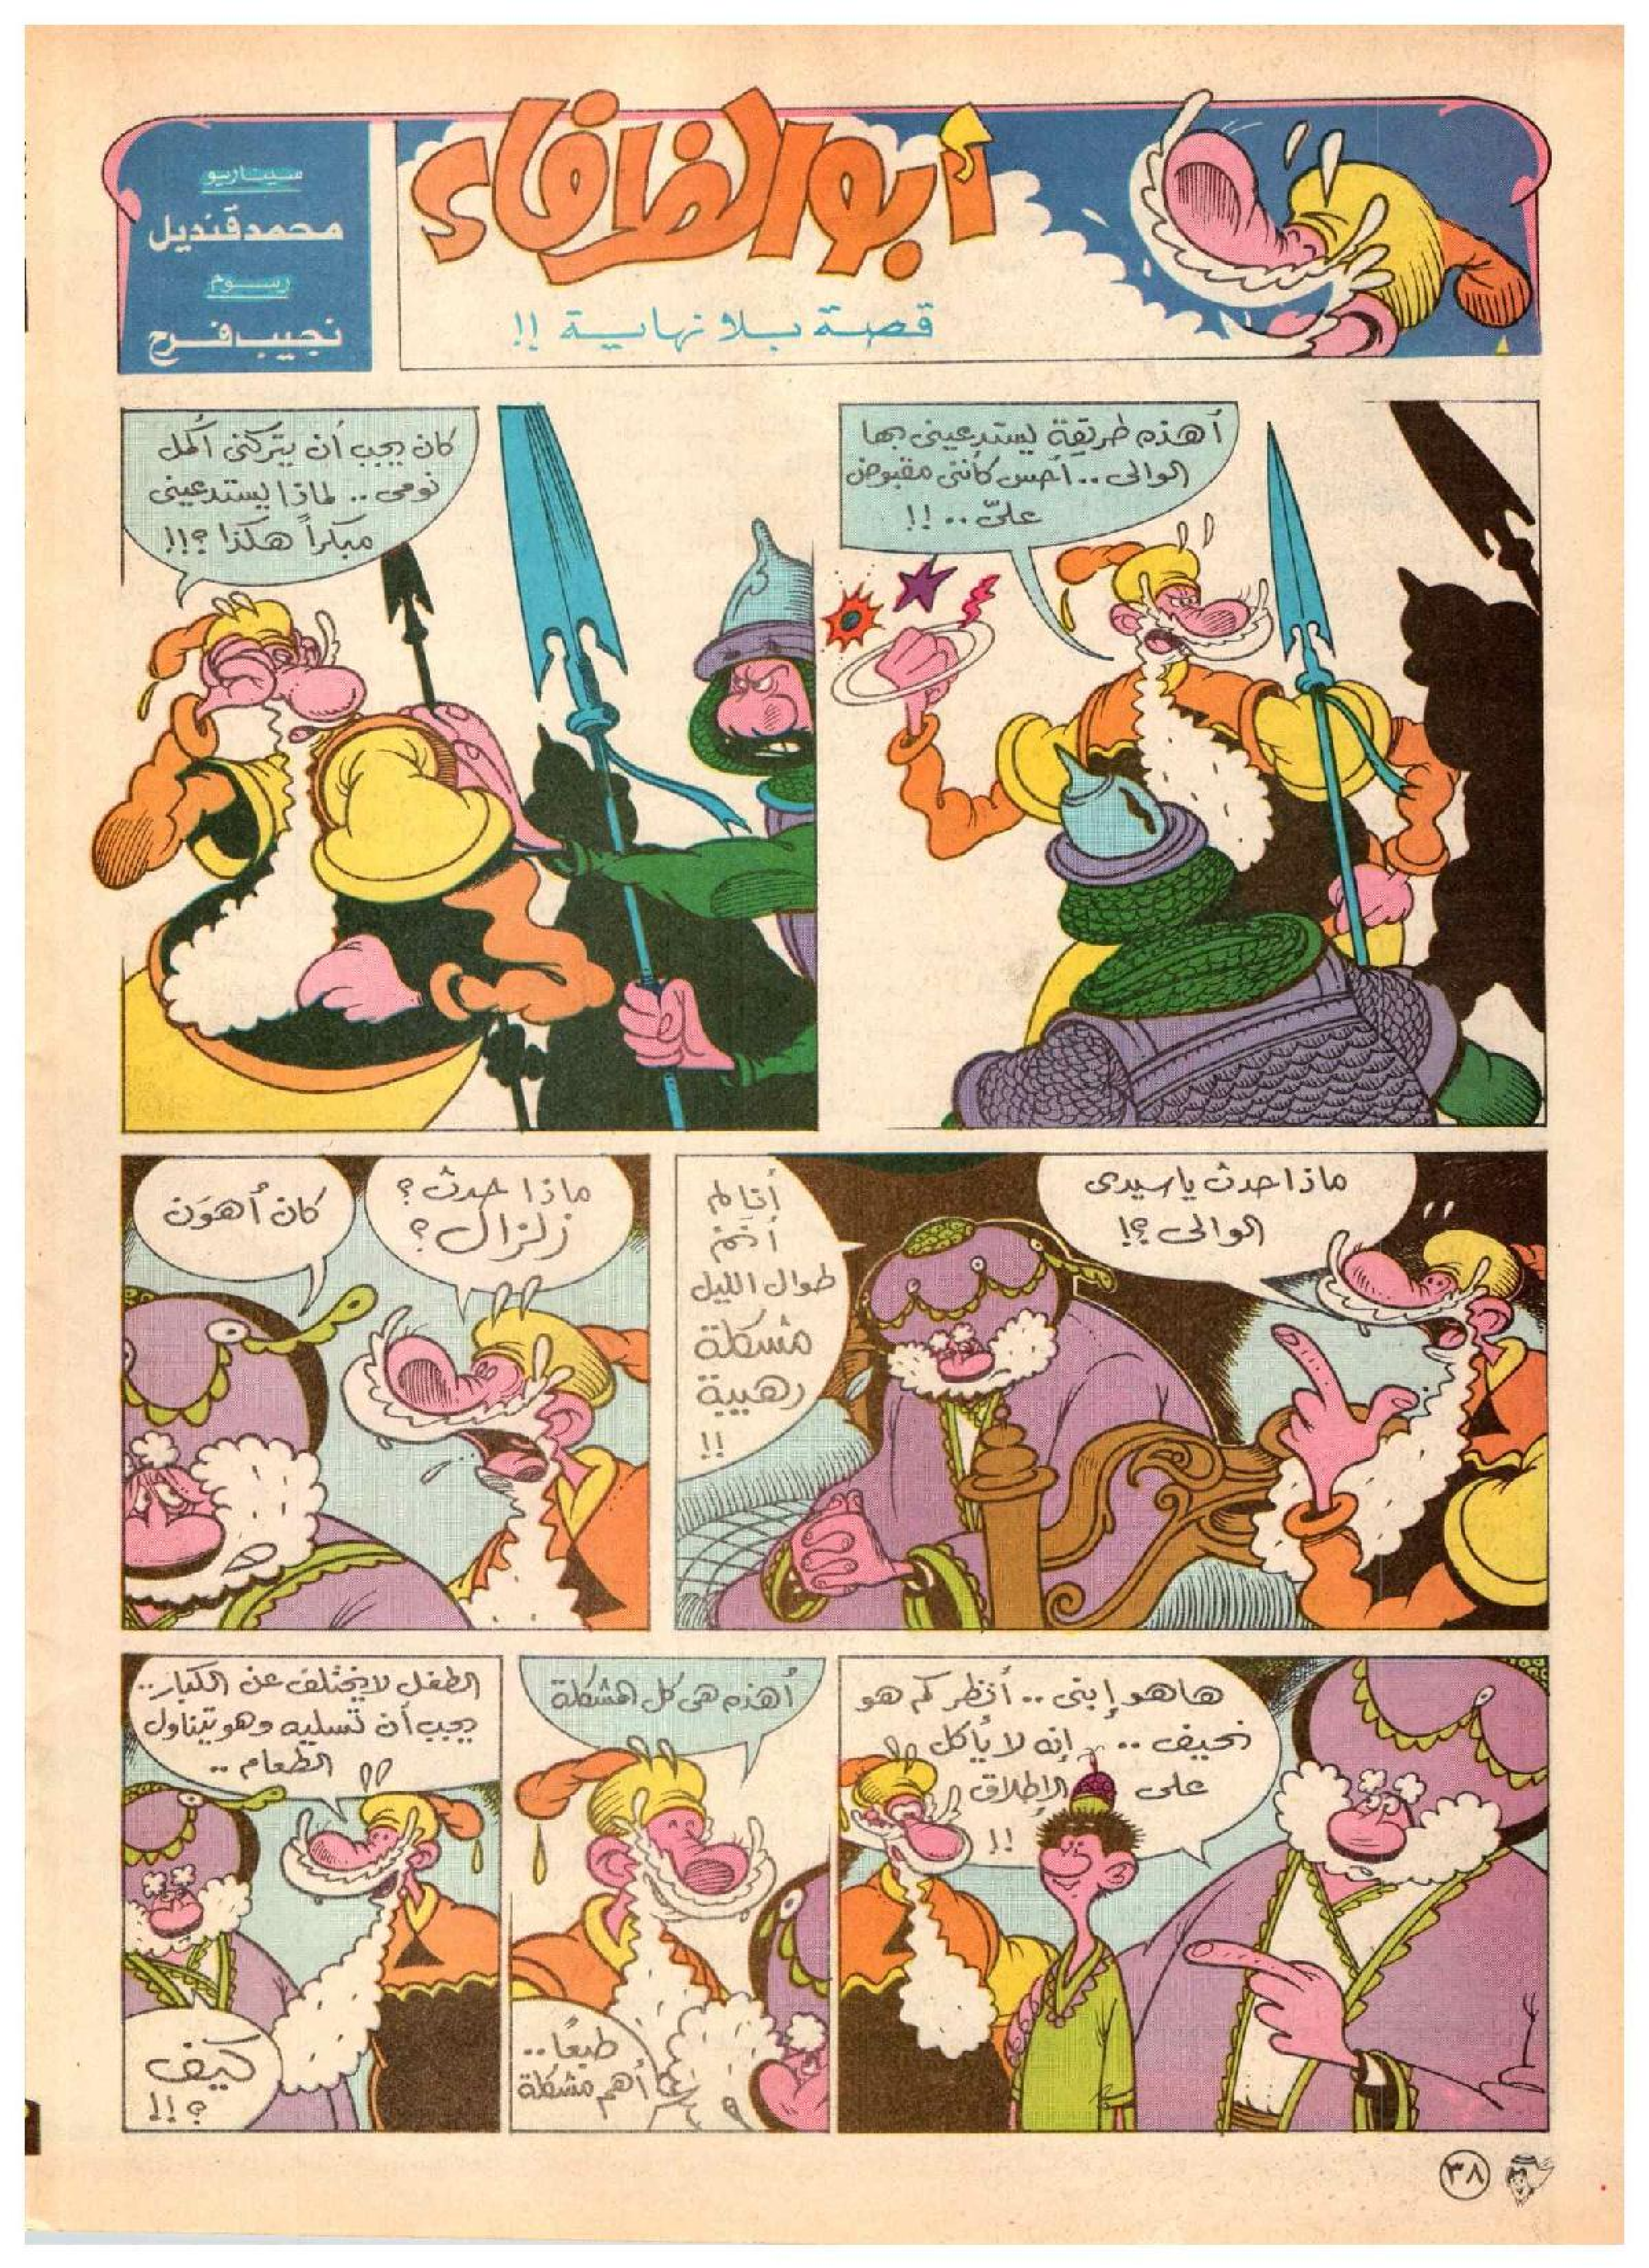 أبو الظرفاء
قصة بلا نهاية !!
سيناريو
محمد قنديل
رسوم
نجيب فرج
أهذه طريقة يستدعينى بها
الوالى .. أحس كأننى مقبوض
علىّ .. !!
كان يجب أن يتركنى أكمل
نومى .. لماذا يستدعينى
مبكراً هكذا ؟!!
ماذا حدث ياسيدى
الوالى ؟!
أنا لم
أنم
طوال الليل
مشكلة
رهيبة
!!
ماذا حدث ؟
زلزال ؟
كان أهوَن
ها هو إبنى .. أنظر كم هو
نحيف .. إنه لا يأكل
على الإطلاق
!!
أهذه هى كل المشكلة
طبعًا ..
أهم مشكلة
الطفل لا يختلف عن الكبار ..
يجب أن تسليه وهو يتناول
الطعام ..
كيف
؟!!
٣٨